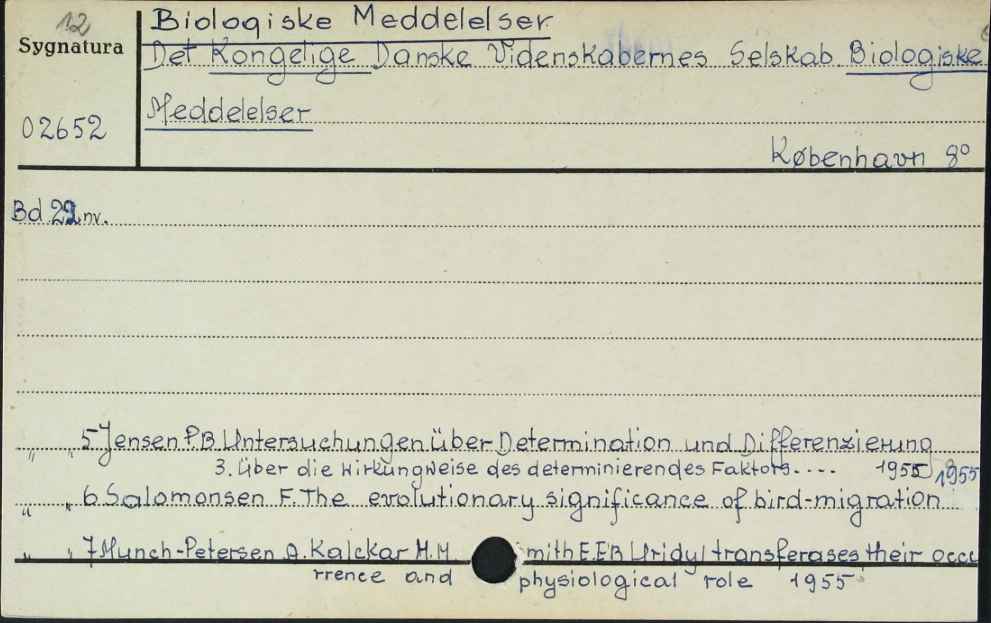 12
Sygnatura
02652
Biologiske Meddelelser
Det Kongelige Danske Videnskabernes Selskab Biologiske
Meddelelser
København 8°
Bd 22 nr.
" " 5 Jensen P.B Untersuchungen über Determination und Differenzierung
3. Über die Wirkungweise des determinierendes Faktors.... 1955 1955
" " 6 Salomonsen F. The evolutionary significance of bird-migration
" " 7 Munch-Petersen A. Kalckar H.M mith E.E.B Uridyl transferases their occu
rrence and physiological role 1955